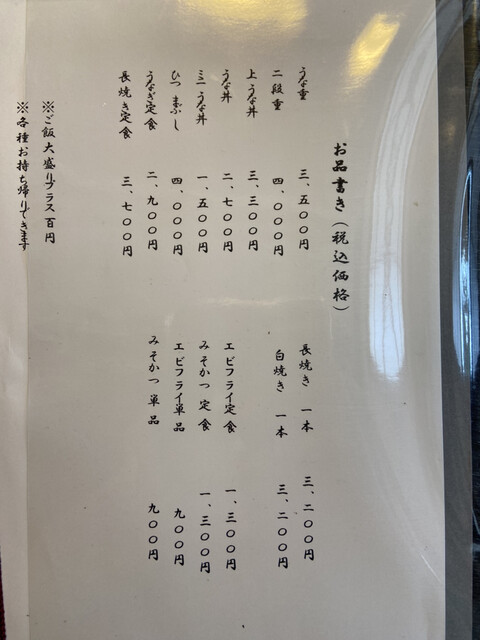 お品書き(税込価格)
うな重 三、五〇〇円
二段重 四、〇〇〇円
上うな丼 三、三〇〇円
うな丼 二、七〇〇円
ミニうな丼 一、五〇〇円
ひつまぶし 四、〇〇〇円
うなぎ定食 二、九〇〇円
長焼き定食 三、七〇〇円
長焼き 一本 三、二〇〇円
白焼き 一本 三、二〇〇円
エビフライ定食 一、三〇〇円
みそかつ定食 一、三〇〇円
エビフライ単品 九〇〇円
みそかつ単品 九〇〇円
※ご飯大盛りプラス百円
※各種お持ち帰りできます